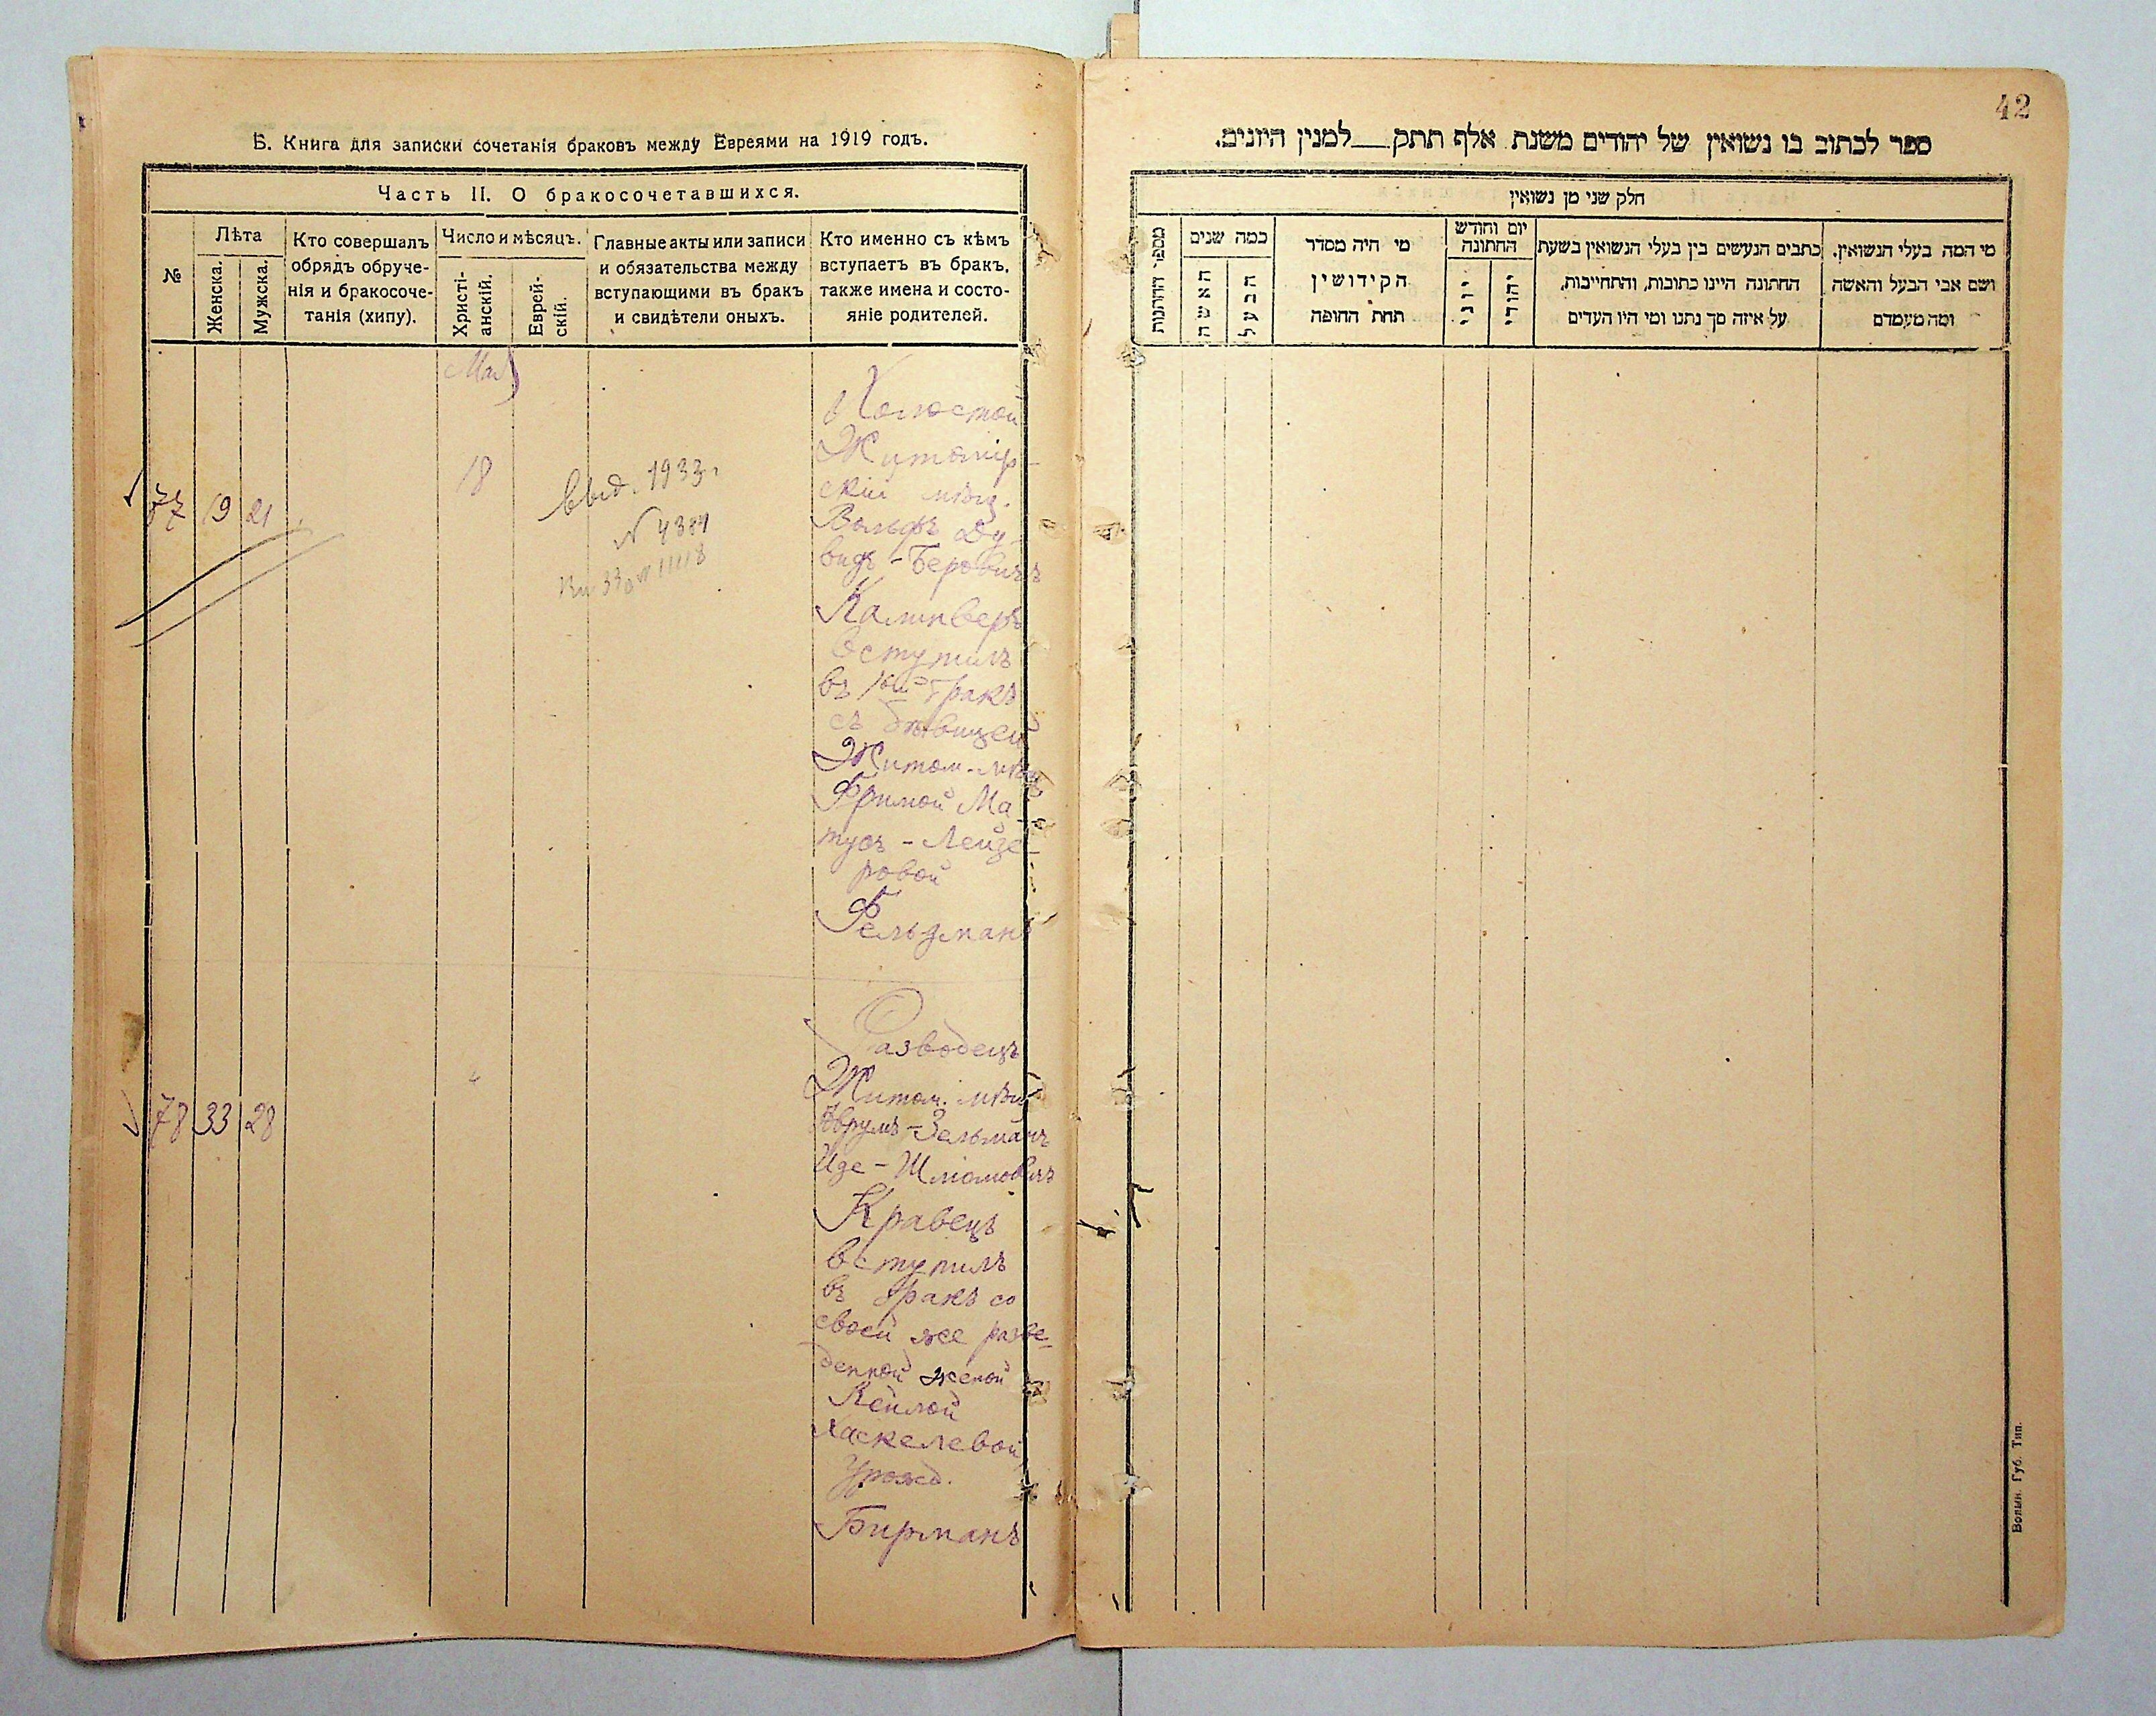 Б. Книга для записки сочетанія браковъ между Евреями на 1919 годъ.
Часть II. О бракосочетавшихся.
№
Лѣта
Женска.
Мужска.
Кто совершалъ
обрядъ обруче-
нія и бракосоче-
танія (хипу).
Число и мѣсяцъ.
Христі-
анскій.
Еврей-
скій.
Главные акты или записи
и обязательства между
вступающими въ бракъ
и свидѣтели оныхъ.
Кто именно съ кѣмъ
вступаетъ въ бракъ,
также имена и состо-
яніе родителей.
Май
77 19 21
18
выд. 1933 г
№ 4384
Холостой
Житомір-
скій мѣщ.
Вольфъ Ду-
видъ-Беровичъ
Калинверъ
вступилъ
въ 1ый бракъ
съ дѣвицей
Житом. мѣщ
Фримой Ма-
тусъ-Лейзе-
ровой
Фельдманъ
78 33 28
"
Разводецъ
Житом. мѣщ
Аврумъ-Зельманъ
Иде-Шліомовичъ
Кравецъ
вступилъ
въ бракъ со
своей же разве-
денной женой
Кейлой
Хаскелевой
Урожд.
Бирманъ
42
ספר לכתוב בו נשואין של יהודים משנת אלף תתק__למנין היונים.
חלק שני מן נשואין
מספר החתונות
כמה שנים
האשה
הבעל
מי היה מסדר
הקידושין
תחת החופה
יום וחודש
החתונה
יוני
יהודי
כתבים הנעשים בין בעלי הנשואין בשעת
החתונה היינו כתובות, והתחייבות,
על איזה סך נתנו ומי היו העדים
מי המה בעלי הנשואין.
ושם אבי הבעל והאשה
ומה מעמדם
Волын. Губ. Тип.